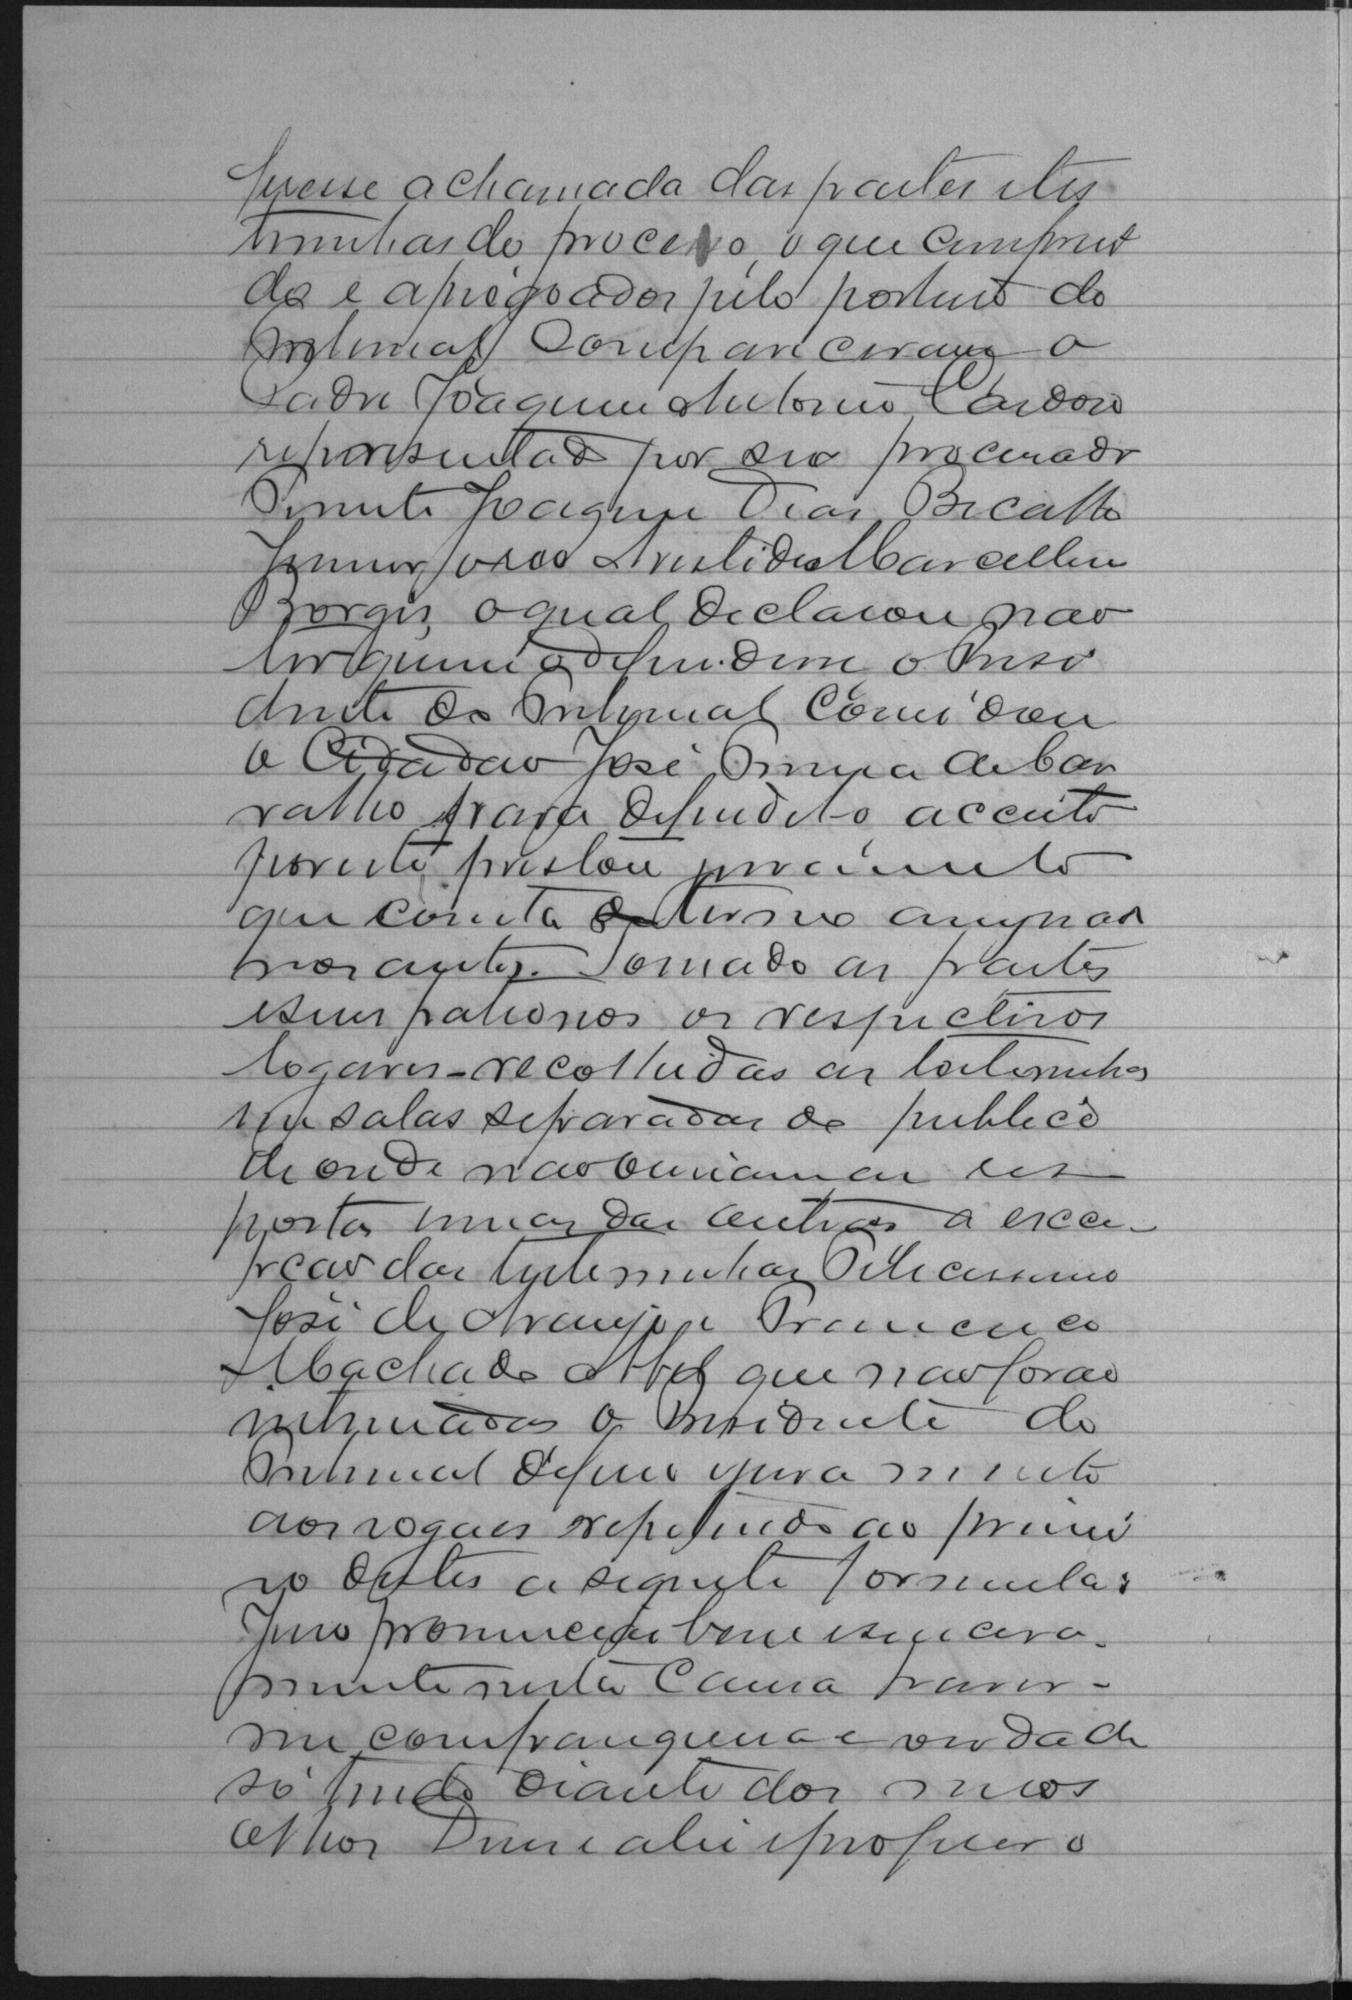 fizesse a chamada das partes e tes
timunhas do processo, o que cumpri
do e apregoados pelo porteiro do
Tribunal compareceram o
Padre Joaquim Antonio Cardoso
representado por seo procurador
Tenente Joaquim Dias Bicalho
Junior, o reo Aristides Marcellino
Borges, o qual declarou nao
ter quem o defendesse o Presi
dente do Tribunal convidou
o Cidadao José Pereira de Car
valho para defendel-o, acceito
por este prestou juramento
que consta do termo
nos autos. Tomado as partes
e seus patronos os respectivos
logares - recolhidas as testemunhas
em salas separadas do publico
de onde nao ouviam as res
postas umas das outras a exce-
pcao das testemunhas Felicissimo
José de Araujo e Francisco
Machado que nao forao
intimadas o Presidente do
Tribunal deferio juramento
aos vogaes repetindo ao primei
ro destes a seguinte formula:
Juro pronunciar bem e sincera-
mente nesta causa haver-
me com franqueza e verdade
só tendo diante dos meos
olhos Deus a lei e proferir o